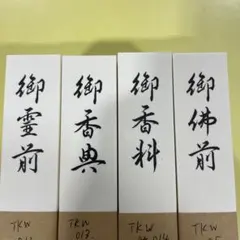 御霊前
御香典
御香料
御佛前
TKW
TKW
017
TKW
TKW